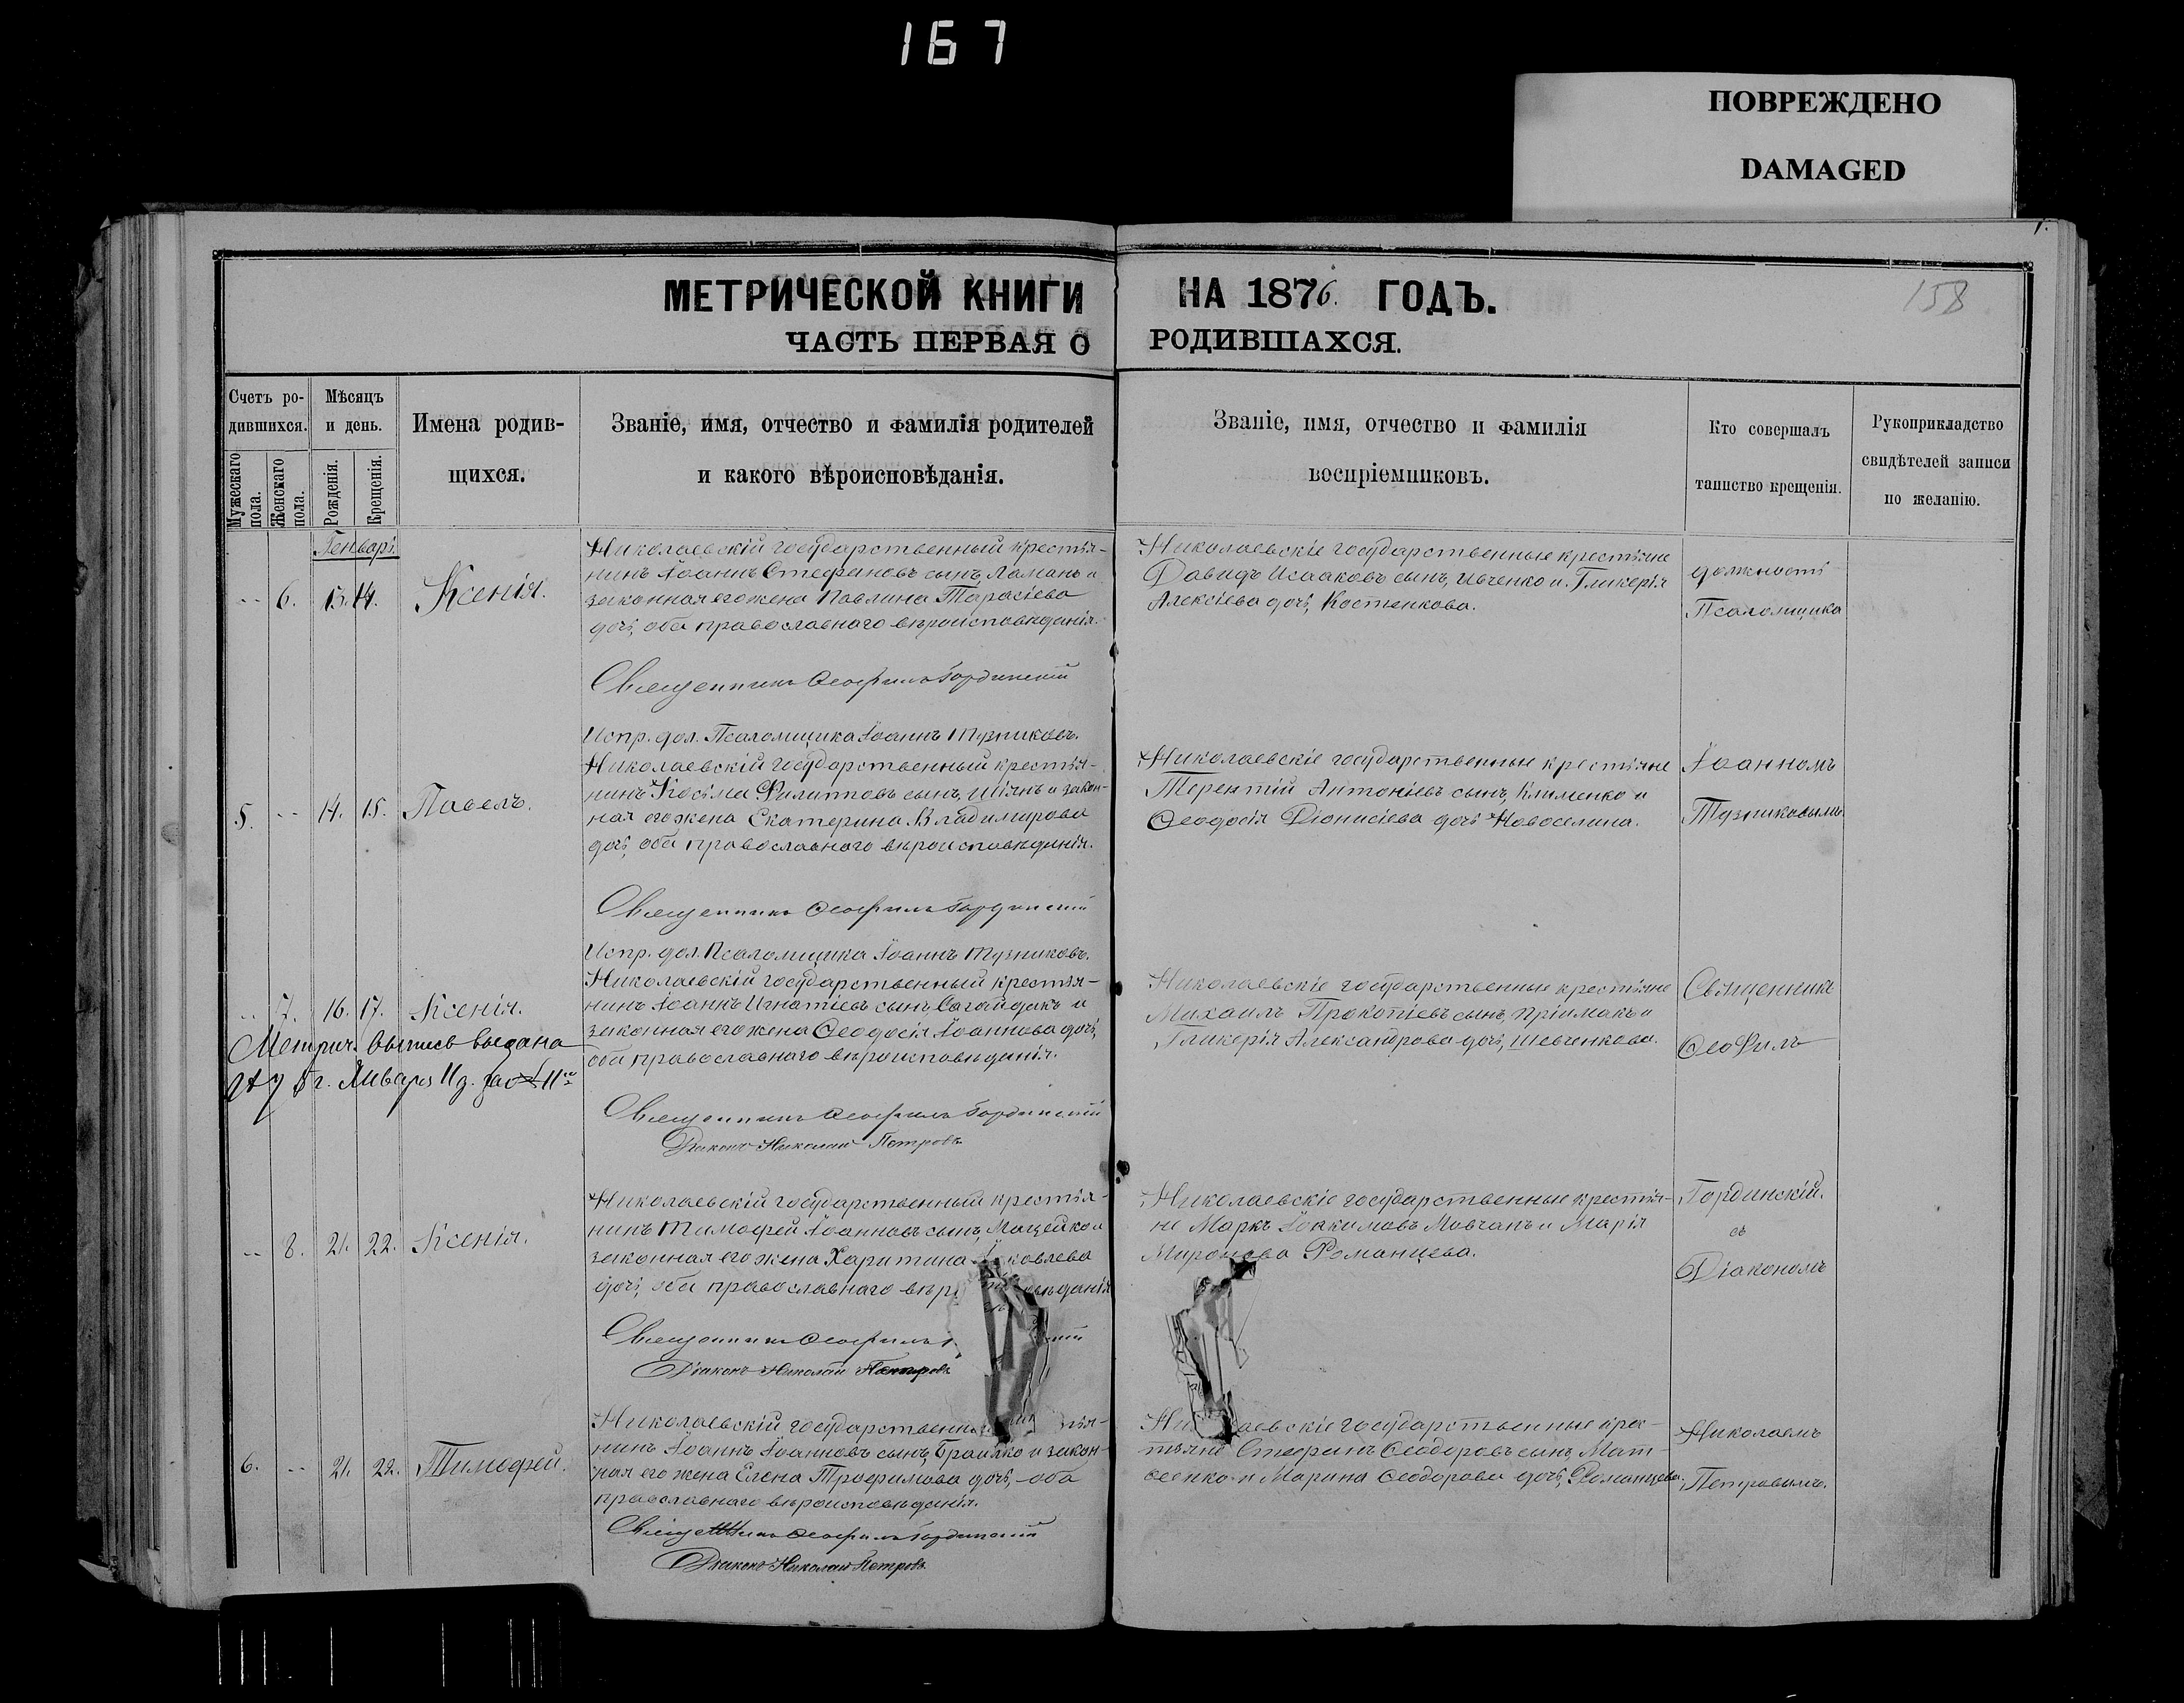 167
ПОВРЕЖДЕНО
DAMAGED
158
МЕТРИЧЕСКОЙ КНИГИ НА 1876. ГОДЪ.
ЧАСТЬ ПЕРВАЯ О РОДИВШАХСЯ.
Счетъ ро-
дившихся.
Мужескаго пола.
Женскаго пола.
Мѣсяцъ
и день.
Рожденія.
Крещенія.
Имена родив-
щихся.
Званіе, имя, отчество и фамилія родителей
и какого вѣроисповѣданія.
Званіе, имя, отчество и фамилія
воспріемниковъ.
Кто совершалъ
таинство крещенія.
Рукоприкладство
свидѣтелей записи
по желанію.
Генварь
-- 6. 13. 14. Ксенія.
Николаевскій государственный крестья-
нинъ Іоаннъ Стефановъ сынъ, Ломань и
законная его жена Павлина Тарасіева
дочь, оба православнаго вѣроисповѣданія.
Священникъ Ѳеофилъ Гординскій
Испр. дол. Псаломщика Іоаннъ Тузниковъ.
Николаевскіе государственные крестьяне
Давидъ Исааковъ сынъ, Ивченко и Гликерія
Алексіева дочь, Костенкова.
должность
Псаломщика
5. -- 14. 15. Павелъ.
Николаевскій государственный крестья-
нинъ Косьма Филипповъ сынъ, Шіянъ и закон-
ная его жена Екатерина Владимирова
дочь, оба православнаго вѣроисповѣданія.
Священникъ Ѳеофилъ Гординскій
Испр. дол. Псаломщика Іоаннъ Тузниковъ.
Николаевскіе государственные крестьяне
Терентій Антоніевъ сынъ, Клименко и
Ѳеодосія Діонисіева дочь Новоселина.
Іоанномъ
Тузниковымъ.
-- 7. 16. 17. Ксенія.
Метрич. выпись выдана
г. Января 11 д. за № 11
Николаевскій государственный крестья-
нинъ Іоаннъ Игнатіевъ сынъ, Сагайдакъ и
законная его жена Ѳеодосія Іоаннова дочь,
оба православнаго вѣроисповѣданія.
Священникъ Ѳеофилъ Гординскій
Діаконъ Николай Петровъ
Николаевскіе государственные крестьяне
Михаилъ Прокопіевъ сынъ, Пріймакъ и
Гликерія Александрова дочь, Шевченкова.
Священникъ
Ѳеофилъ
-- 8. 21. 22. Ксенія.
Николаевскій государственный крестья-
нинъ Тимофей Іоанновъ сынъ, Мацейко и
законная его жена Харитина ковлева
дочь, оба православнаго вѣр овѣданія
Священникъ Ѳеофилъ
Діаконъ Николай Петровъ
Николаевскіе государственные крестья-
не Маркъ Іоакимовъ Мовчанъ и Марія
Миронова Романцева.
Гординскій.
съ
Діакономъ
6. -- 21. 22. Тимофей.
Николаевскій государственн
нинъ Іоаннъ Іоанновъ сынъ, Граилко и закон-
ная его жена Елена Трофимова дочь, - оба
православнаго вѣроисповѣданія.
Священникъ Ѳеофилъ Гординскій
Діаконъ Николай Петровъ
Ни аевскіе государственные крес-
тьяне Стефанъ Ѳеодоровъ сынъ, Мат-
веенко и Марина Ѳеодорова дочь, Романцева.
Николаемъ
Петровымъ.